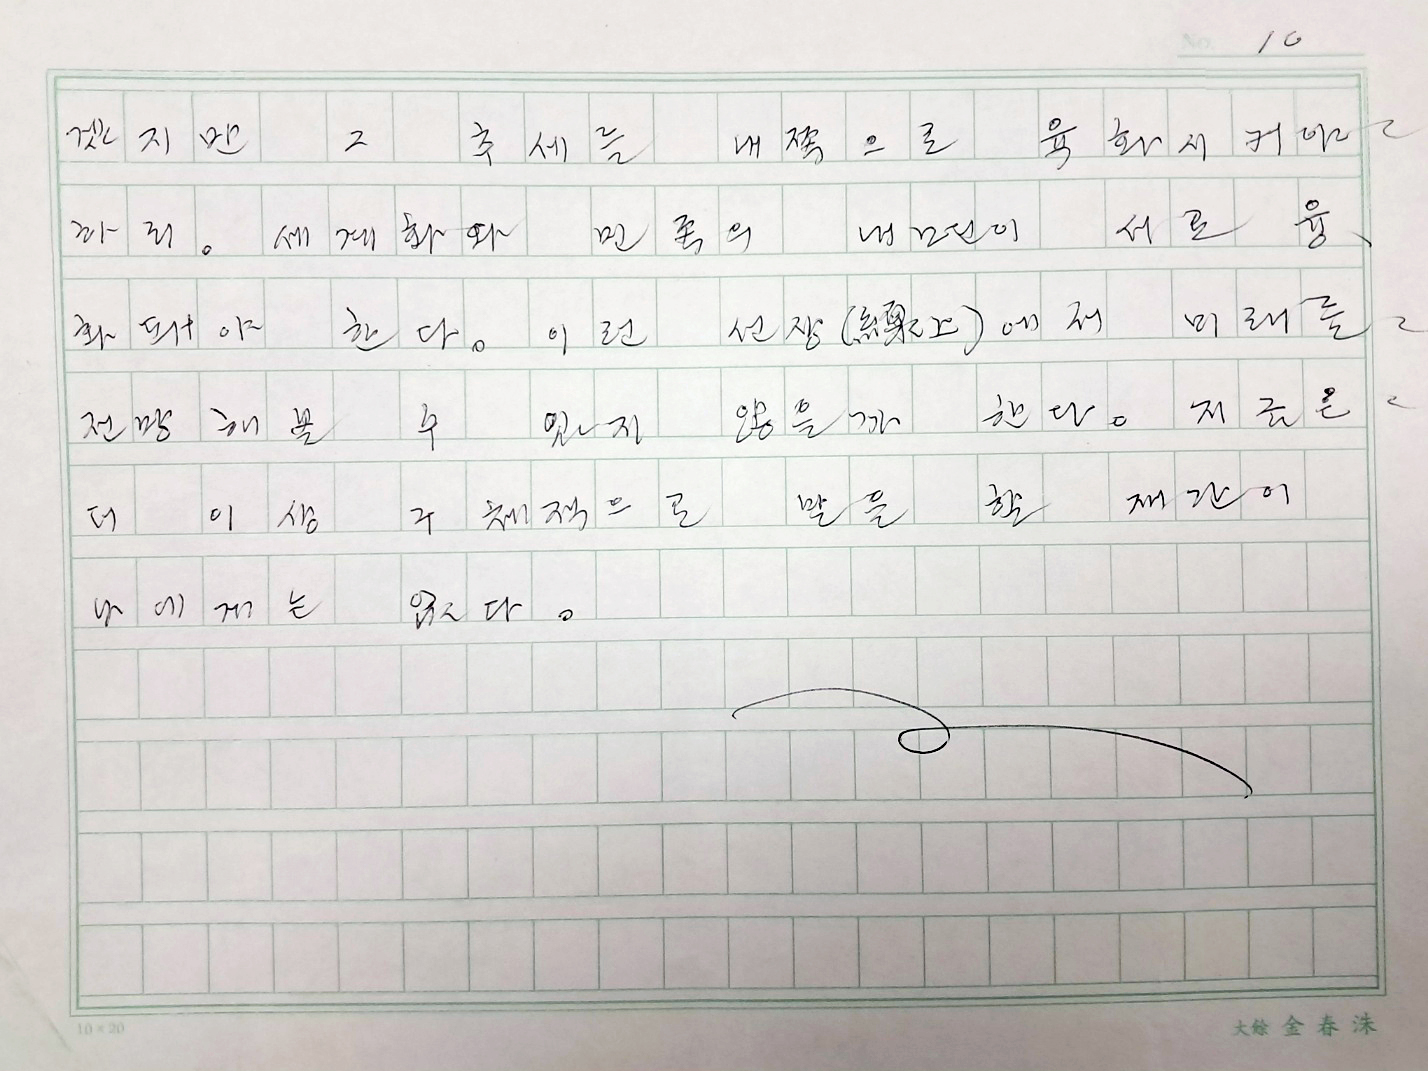 No. 10
겠지만 그 추세를 내쪽으로 육화시켜야
하리. 세계화와 민족의 념이 서로 융
화돼야 한다. 이런 선상(線上)에서 미래를
전망해볼 수 있지 않을까 한다. 지금은
더 이상 구체적으로 말을 할 재간이
나에게는 없다.
10×20
大餘 金春洙